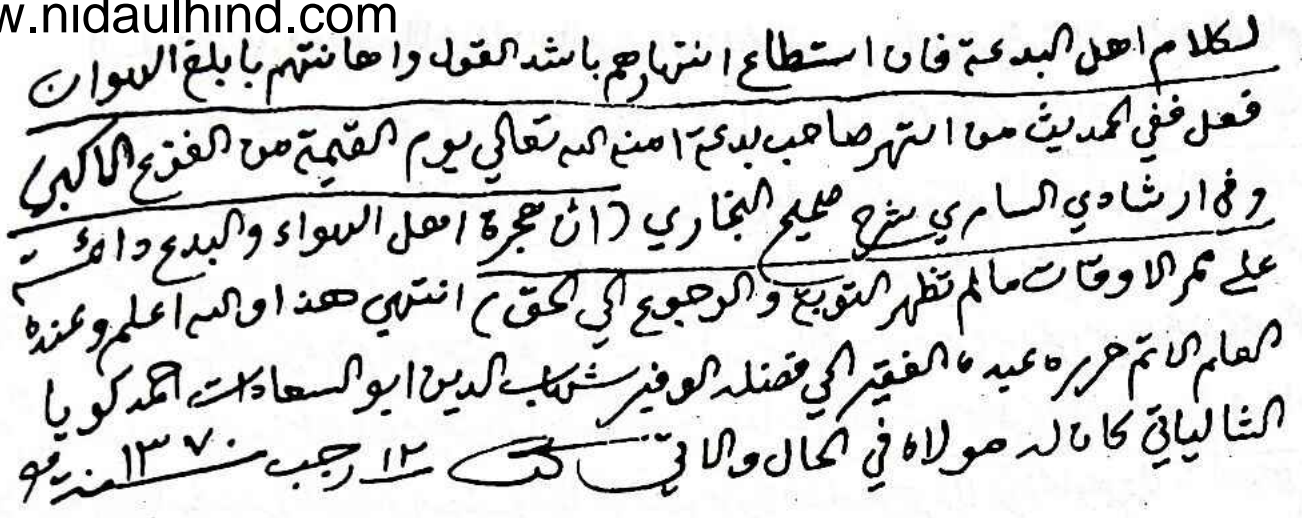 w.nidaulhind.com
لكلام اهل البدعة فان استطاع انتهارهم باشد القول واهانتهم بابلغ الهوان
فعل ففي الحديث من انتهر صاحب بدعة امنه الله تعالي يوم القيمة من الفزع الاكبر)
وفي ارشادي الساري شرح صحيح البخاري (ان هجرة اهل الهواء والبدع دائمة
علے ممر الاوقات مالم تظهر التوبة والرجوع الي الحق) انتهي هذا والله اعلم وعنده
العلم الاتم حرره عبيده الفقير الي فضله الوفير شهاب الدين ابو السعادات احمد كويا
الشالياتي كان له مولاه في الحال والاتي ١٢ رجب ١٣٧٠